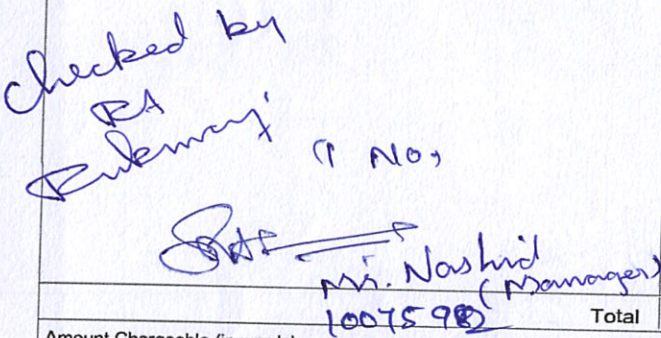 Checked by
RA
Rukmanji
(1 No,
Mr. Nashid
(Manager)
Total
Amount Chargeable (in words)